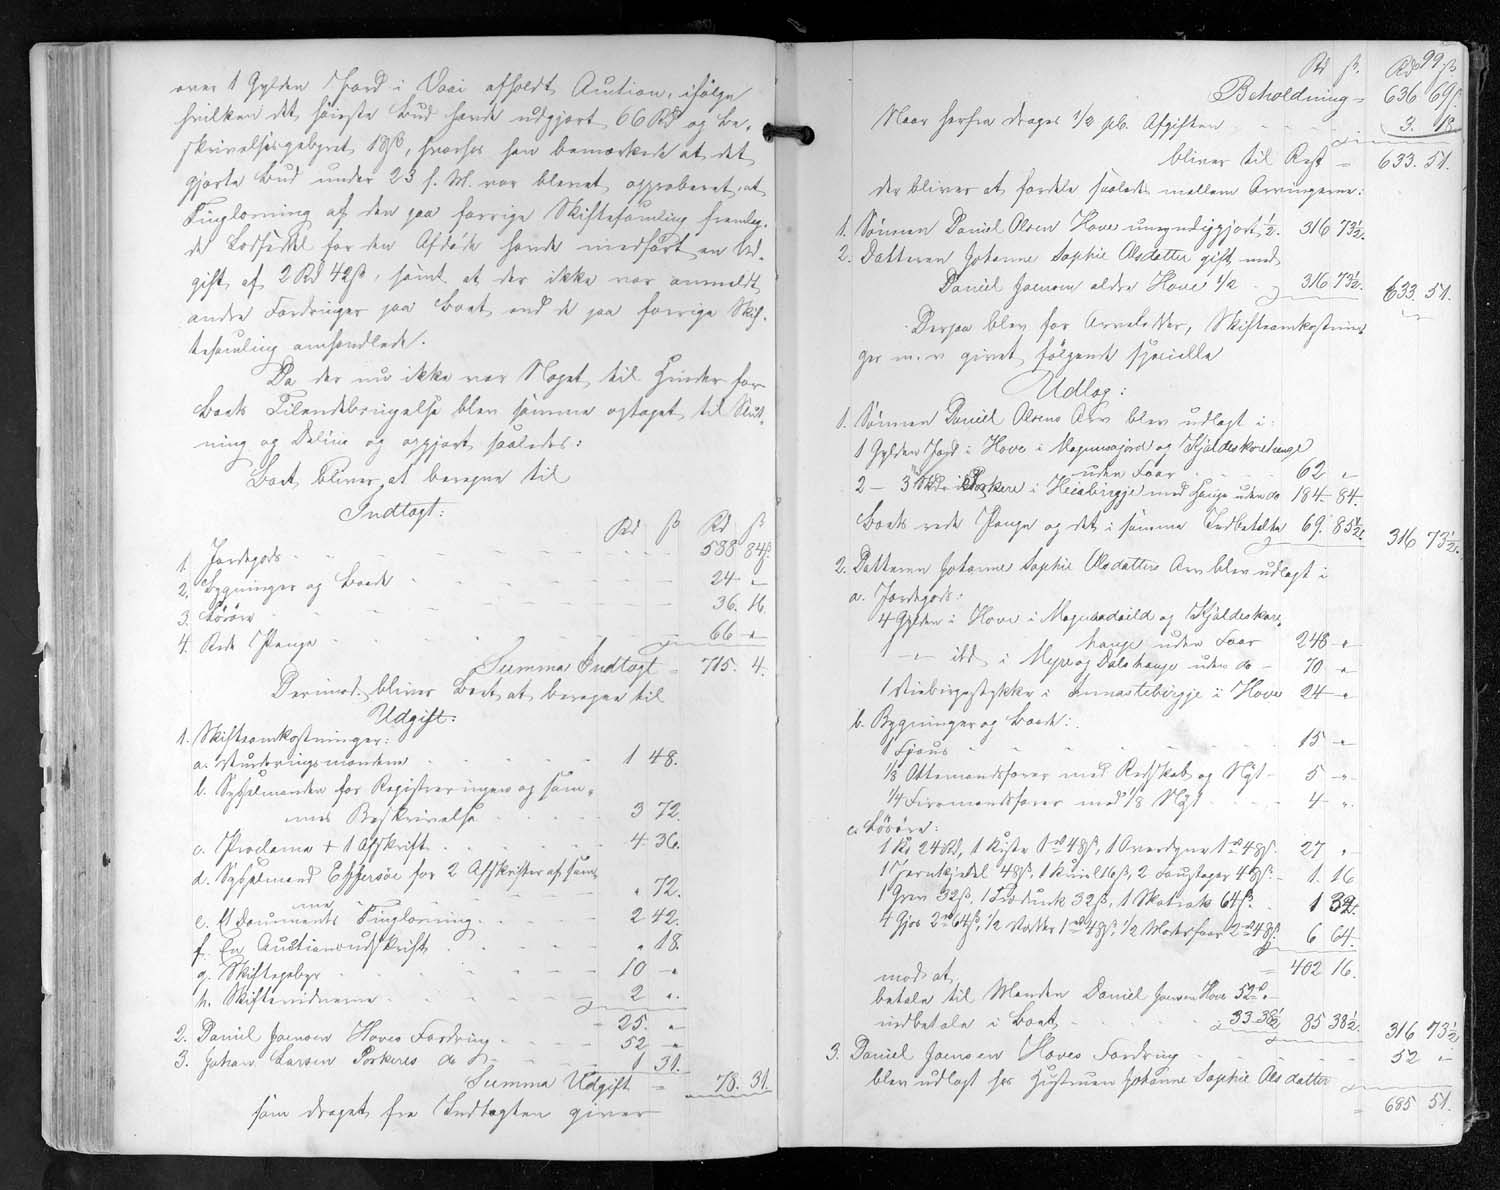 over 1 Gylden Jord i Vaai afholdt Auction, ifølge
hvilken det høieste Bud havde udgjort 66 Rd og Be-
skrivelsesgebyret 18 ß, hvorfor han bemærkede at det
gjorte Bud under 23 f. M. var blevet approberet, at
Tinglæsning af den paa forrige Skiftesamling fremlag-
de Lodseddel for den Afdøde havde medført en Ud-
gift af 2 Rd 42 ß, samt at der ikke var anmeldt
andre Fordringer paa Boet end de paa forrige Skif-
tesamling omhandlede.
Da der nu ikke var Noget til Hinder for
Boets Tilendebringelse blev samme optaget til Slut-
ning og Deling og opgjort saaledes:
Boet bliver at beregne til
Indtægt:
Rd ß Rd ß
1. Jordegods 588 84 ß.
2. Bygninger og Baade 24 "
3. Løsøre 36. 16
4. Rede Penge 66 "
Summa Indtægt = 715. 4.
Derimod bliver Boet at beregne til
Udgift:
1. Skifteomkostninger:
a. Vurderingsmændene 1 48.
b. Sysselmanden for Registreringen og sam-
mes Beskrivelse 3 72.
c. Proclama + 1 Afskrift 4 36.
d. Sysselmand Effersøe for 2 Afskrifter af sam-
me " 72.
e. Et Documents Tinglæsning 2 42.
f. En Auctionsudskrift " 18.
g. Skiftegebyr 10 "
h. Skiftevidnerne 2 "
25. "
2. Daniel Joensen Hoves Fordring 52 "
3. Johan Larsen Porkeres do 1 31.
Summa Udgift = 78. 31.
som draget fra Indtægten giver
99
Rd ß. Rd ß
Beholdning = 636 69 ß.
Naar herfra drages 1/2 pCt. Afgiften 3. 18
bliver til Rest = 633. 51.
der bliver at fordele saaledes mellem Arvingerne:
1. Sønnen Daniel Olsen Hove umyndiggjort 1/2. 316 73 1/2.
2. Datteren Johanne Sophie Olsdatter gift med
Daniel Joensen ældre Hove 1/2 316 73 1/2. 633. 51.
Derpaa blev for Arvelodder, Skifteomkostnin-
ger m. v. givet følgende specielle
Udlæg:
1. Sønnen Daniel Olsens Arv blev udlagt i:
1 Gylden Jord i Hove i og
uden Faar 62 "
2 — 3 Skd i Porkere i med Hauge uden do 184 84.
Boets rede Penge og det i samme Indbetalte 69. 85 1/2. 316 73 1/2.
2. Datteren Johanne Sophie Olsdatters Arv blev udlagt i
a. Jordegods:
4 Gylden i Hove i og
hauge uden Faar 248 "
1 — ibd i Myre og Dalshauge uden do 70 "
1 i i Hove 24 "
b. Bygninger og Baade:
1 Fjøus 15 "
1/8 Ottemandsfarer med Redskab og Nøst 5 "
1/4 Firemandsfarer med 1/8 Nøst 4 "
c. Løsøre:
1 Ko 24 Rd, 1 Kiste 1 rd 48 ß, 1 Overdyne 1 rd 48 ß. 27 "
1 Jernkjedel 48 ß, 1 16 ß, 2 48 ß 1. 16
1 Grev 32 ß, 1 32 ß, 1 64 ß. 1 32.
4 2 rd 64 ß, 1/2 1 rd 48 ß 1/2 Moderfaar 2 rd 48 ß 6 64.
= 402 16.
mod at
betale til Manden Daniel Joensen Hove 52 rd "
indbetale i Boet 33 38 1/2 85 38 1/2. 316 73 1/2
3. Daniel Joensen Hoves Fordring 52 "
blev udlagt hos Hustruen Johanne Sophie Olsdatter
= 685 51.